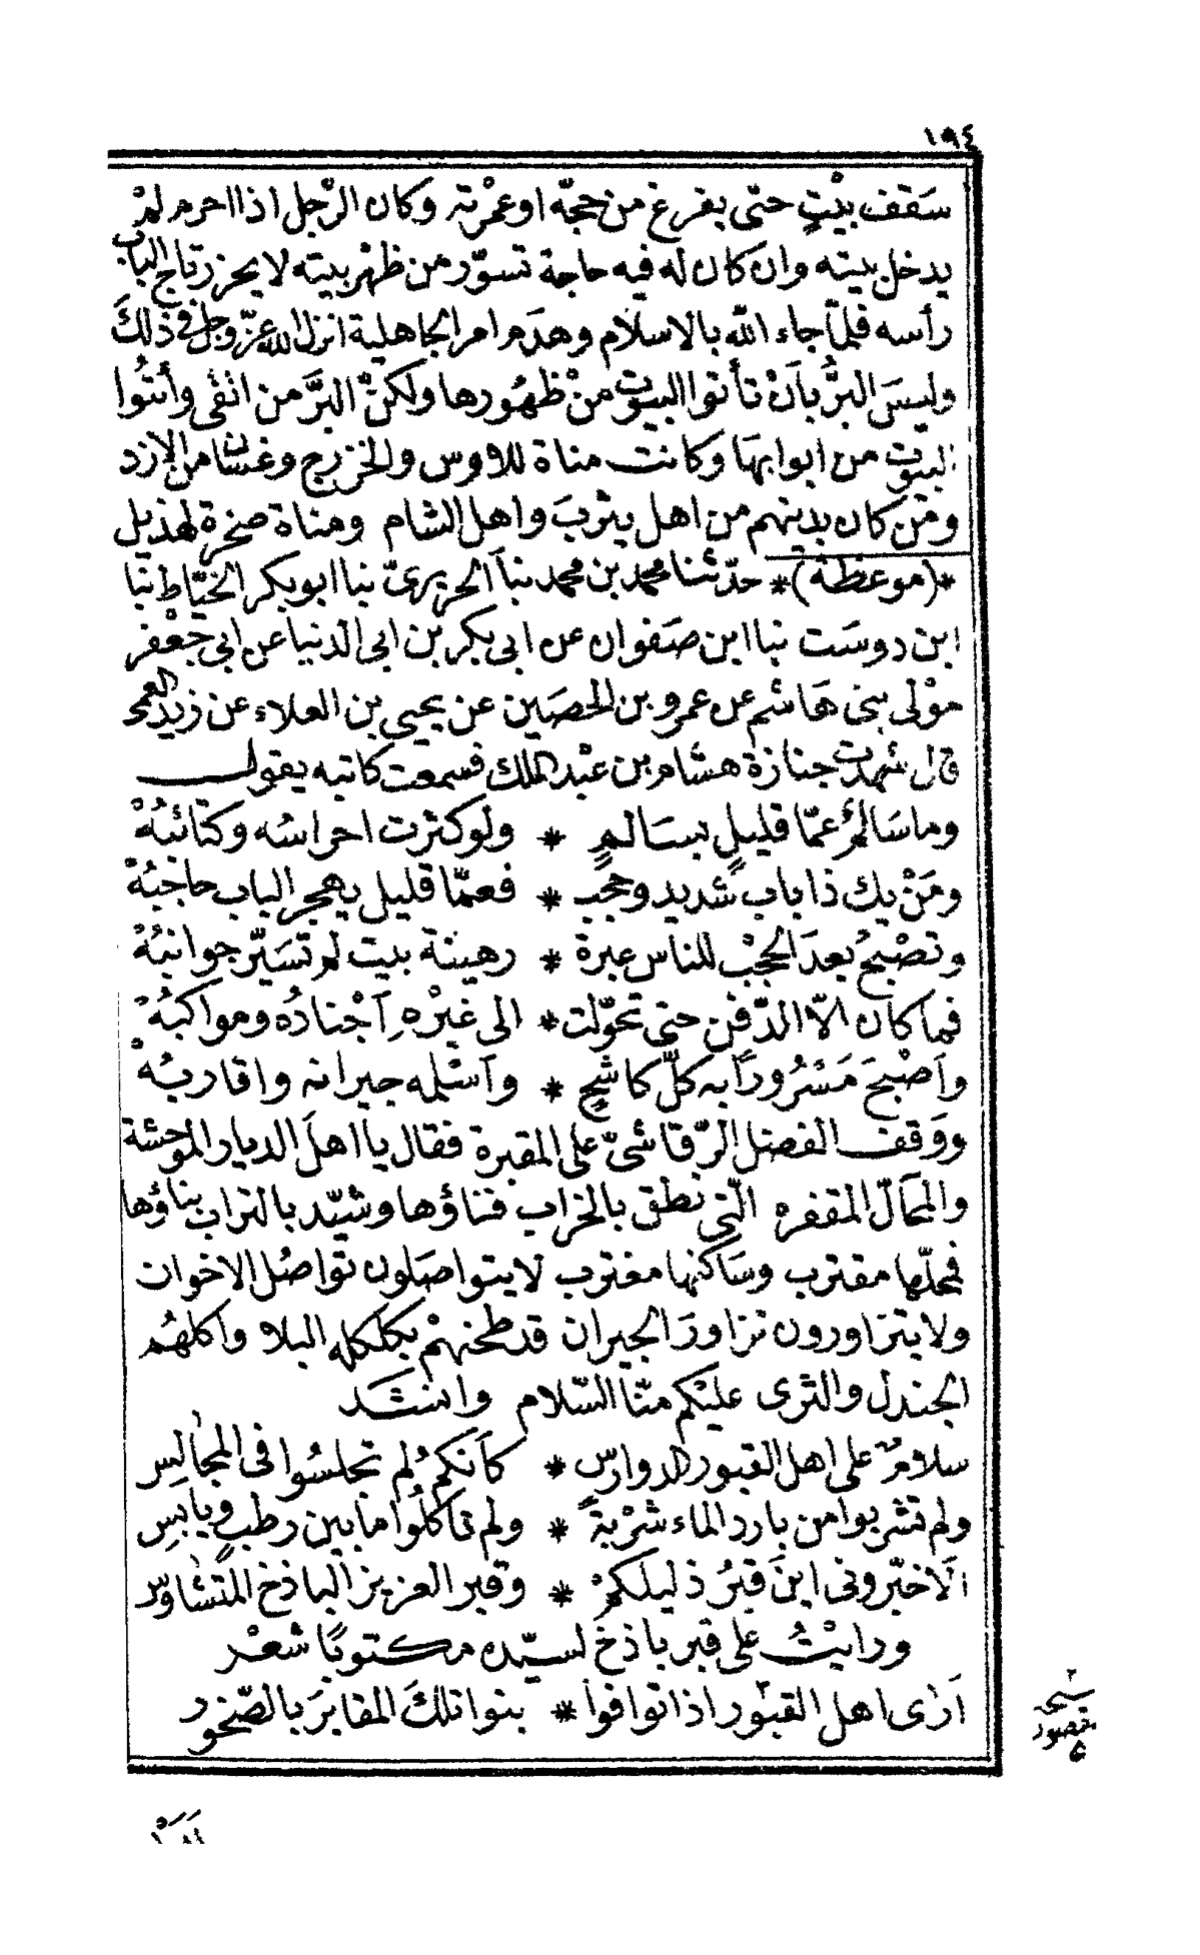 ١٩٤
سَقف بيْتٍ حتى يفرغ من حجّه او عمْرته وكان الرّجل اذا احرم لمْ
يدخل بيته وان كان له فيه حاجة تسوّر من ظهْر بيته لا يحز رتاج الباب
رأسه فلمّا جاء الله بالاسلام وهدَم امر الجاهلية انزل الله عزّ وجل فى ذلكَ
وليسَ البرُّ باَنْ تأتوا البيوت منْ ظهُورها ولكنّ البرَّ من اتقٰى وأتُوا
البيوت من ابوابهَا وكانت مناة للاوس والخزرج وغسّان من الازد
ومَن كان بدينهم من اهل يثربَ واهل الشام ومناة صخرة لهذيل
*(موعظة)* حدّثنا محمد بن محمد نبا الحريرىّ نبا ابو بكر الخيّاط نبا
ابن دوسَت نبا ابن صَفوان عن ابى بكر بن ابى الدنيا عن ابى جَعْفر
موْلى بنى هَاشم عن عمرو بن الحصَين عن يحيى بن العلاء عن زيد العمى
قال شهدت جنازة هشام بن عبْد الملك فسمعت كاتبه يقول
وما سَالمٌ عمّا قليلٍ بسَالمٍ * ولو كثرت احراسُه وكتائبُهْ
ومَنْ يك ذا باب شديد وحجّب * فعمّا قليل يهجر الباب حاجبُهْ
وتصْبح بعدَ الحجْب للناس عبرة * رهينة بيت لم تسَتّر جوانبُهْ
فما كان الاّ الدّفن حتى تحوّلت * الى غيْرهِ اَجْنادُه ومواكبُهْ
واَصْبحَ مَسْرُوراً به كلّ كاشحٍ * واَسْلمه جيرانه واقاربُهْ
ووَقف الفضل الرّقاشىّ على المقبرة فقال يا اهلَ الديار الموحشة
والمحالّ المقفره الّتى نطق بالخراب فناؤها وشيّد بالتراب بناؤها
فمحلّها مقترب وسَاكنها مغترب لا يتواصَلون تواصُل الاخوان
ولا يتزاورون تزاورَ الجيران قد طحنهمْ بكلكله البلا واكلهُم
الجندل والثرى عليْكم منّا السّلام وانشَد
سلامٌ على اهل القبور الدوارس * كأنكم لم تجلسُوا فى المجَالِسِ
ولم تشربوا من بارد الماء شرْبةً * ولم تأكلُوا ما بين رطبٍ ويابسِ
اَلا خبّرونى اينَ قبرُ ذليلكمْ * وقبر العزيز الباذخ المتشاوس
ورايْتُ على قبر باذخ لسيّده مكتوبًا شعْر
اَرٰى اهل القبُور اذا توافوا * بنوا تلكَ المقابرَ بالصّخور
نسخه